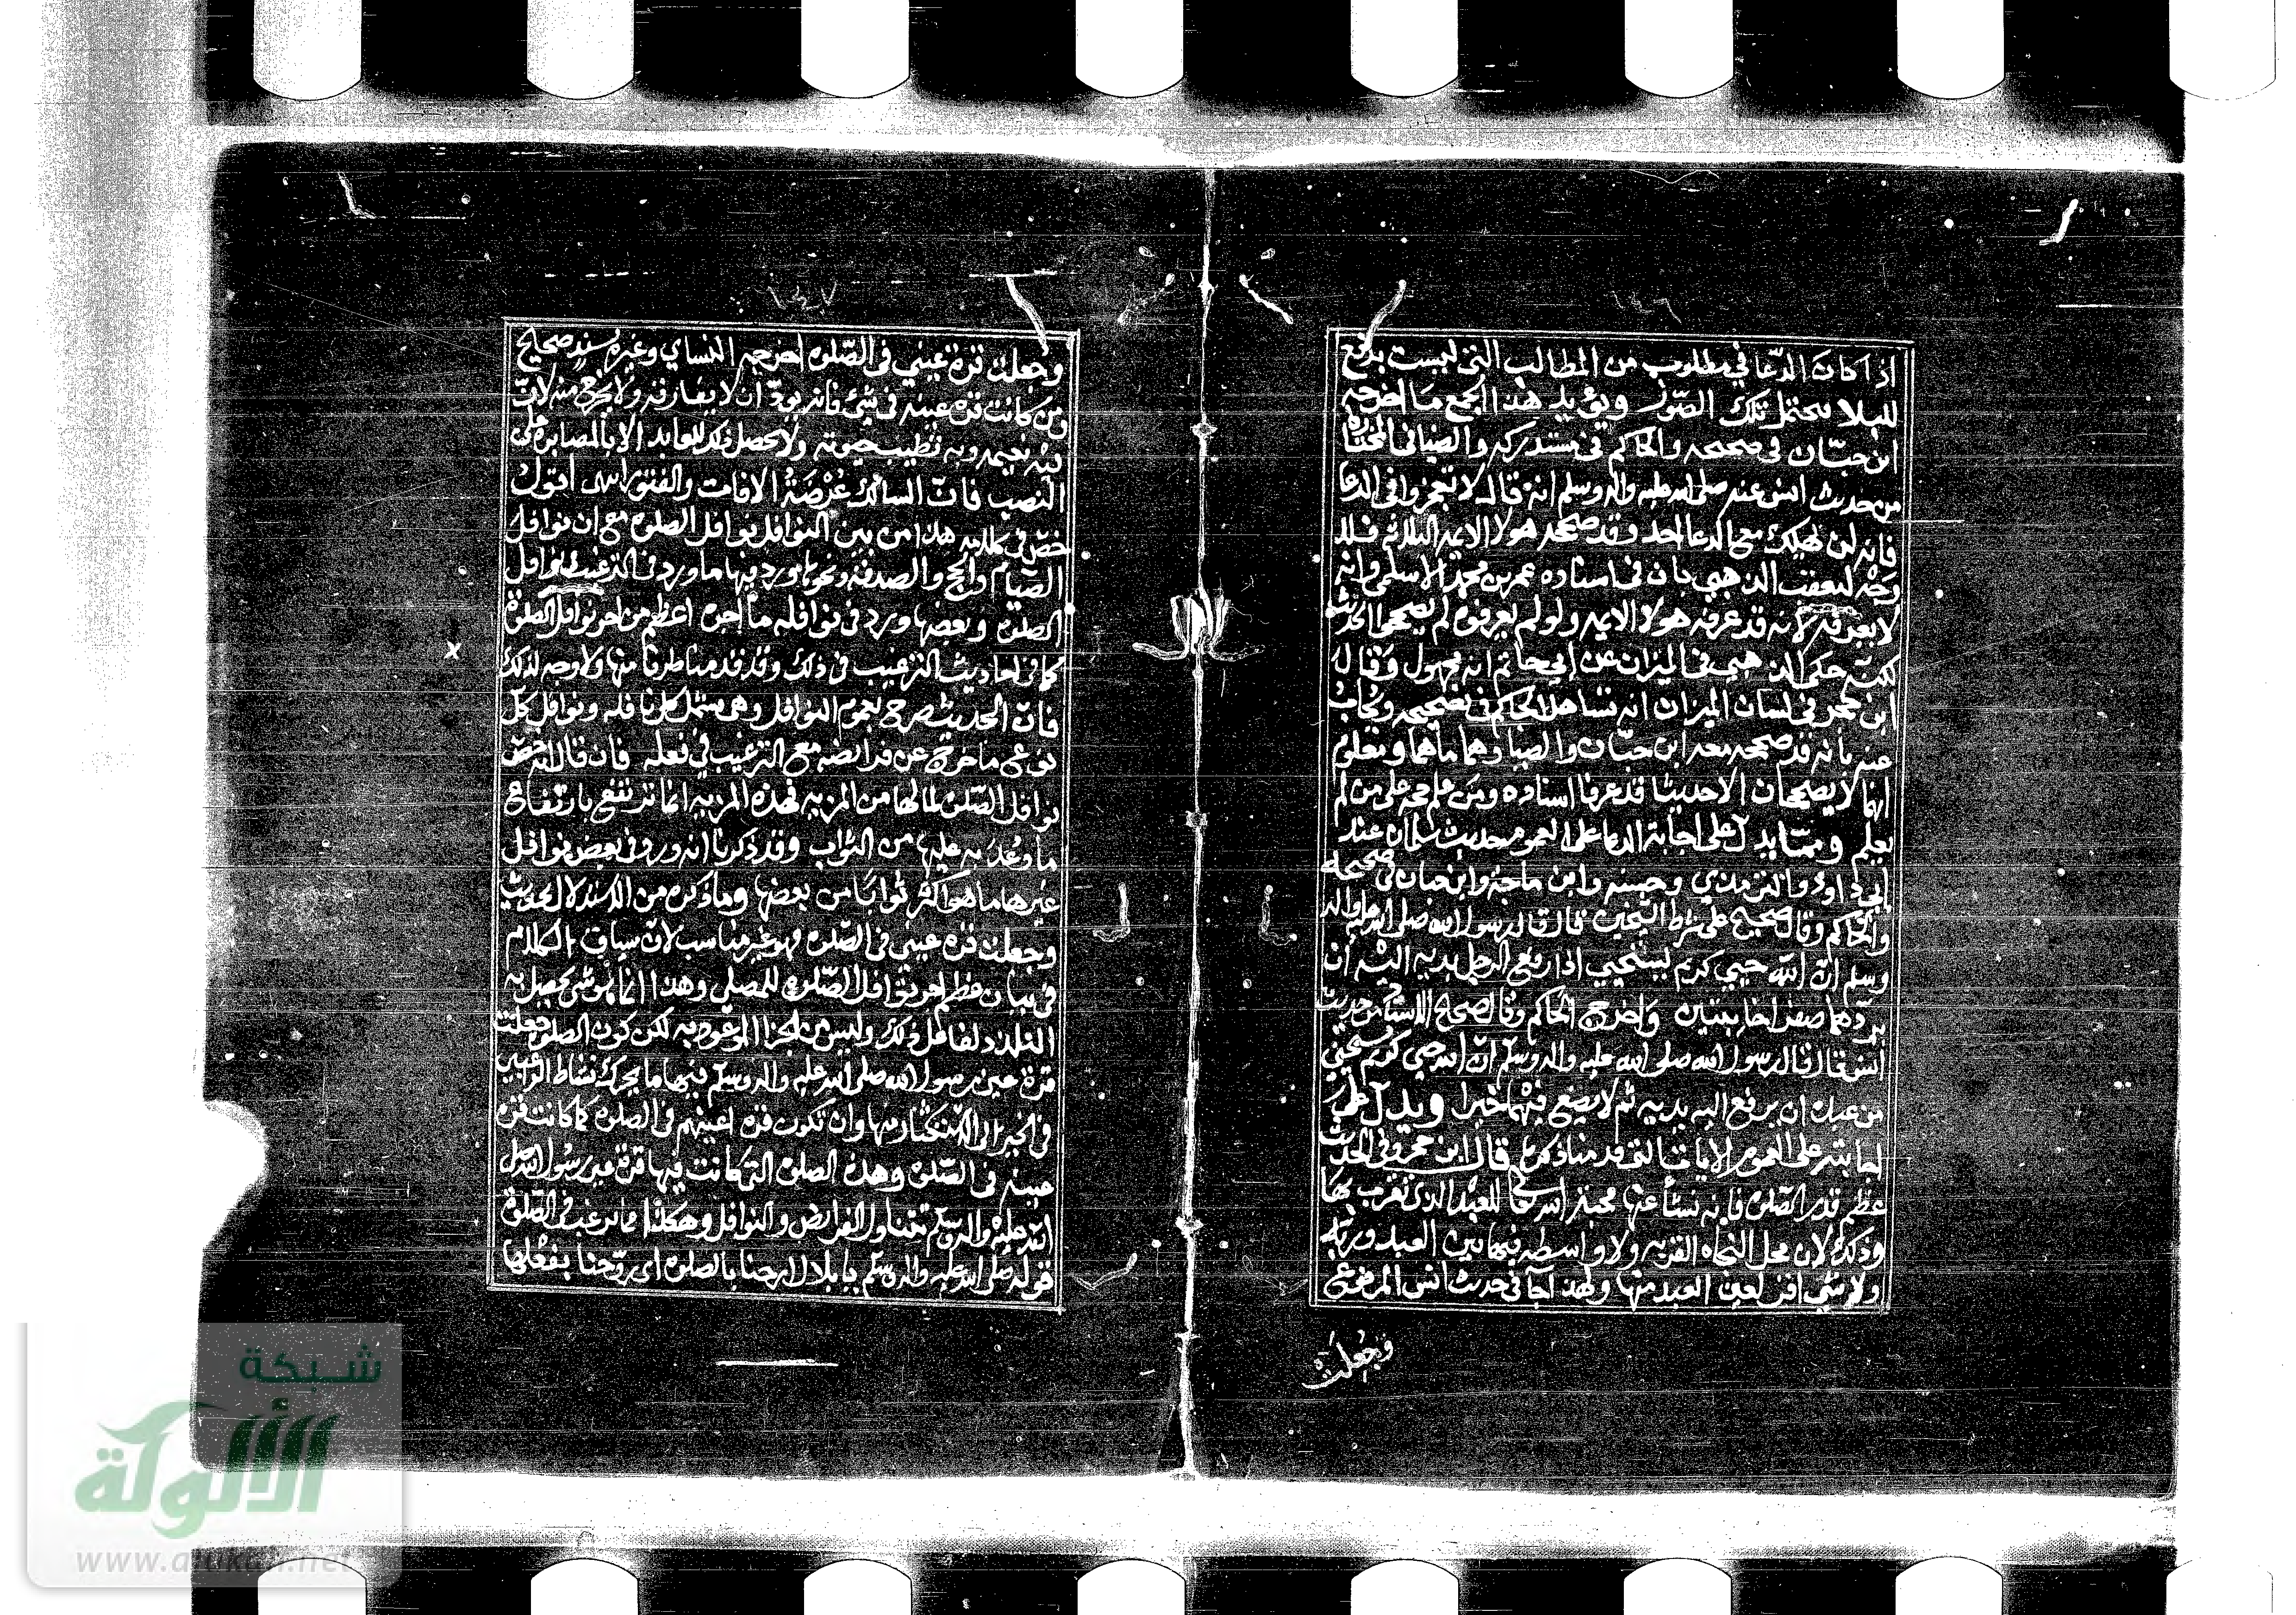 اذا كان الدعا في مطلوب من المطالب التي ليست بدفع
للبلا يحتمل تلك الصور ويؤيد هذا الجمع ما اخرجه
ابن حبان في صحيحه والحاكم في مستدركه والضيا في المختارة
من حديث انس عنه صلى الله عليه واله وسلم انه قال لا تعجزوا في الدعا
فانه لن يهلك مع الدعا احد وقد صححه هولا الايمه الثلاثه فلا
وجه لتعقب الذهبي بان في اسناده عمر بن محمد الاسلمي وانه
لا يعرفه لانه قد عرفه هولا الايمه ولو لم يعرفوه لم يصححوا الحديث
لكنه حكى الذهبي في الميزان عن ابي حاتم انه مجهول وقال
ابن حجر في لسان الميزان انه تساهل الحاكم في تصحيحه ويجاب
عنه بانه قد صححه معه ابن حبان والضيا وهما ما هما ومعلوم
انهما لا يصححان الا حديثا قد عرفا اسناده ومن علم حجه على من لم
يعلم ومما يدل على اجابة الدعا على العموم حديث سلمان عند
ابي داود والترمذي وحسنه وابن ماجه وابن حبان في صحيحه
والحاكم وقال صحيح على شرط الشيخين قال قال رسول الله صلى الله عليه واله
وسلم ان الله حيي كريم يستحيي اذا رفع الرجل يديه اليه ان
يردهما صفرا خايبتين واخرج الحاكم وقال صحيح الاسناد من حديث
انس قال قال رسول الله صلى الله عليه واله وسلم ان الله حيي كريم يستحيي
من عبده ان يرفع اليه يديه ثم لا يضع فيهما خيرا ويدل على
اجابته على العموم الايات التي قدمنا ذكرها قال ابن حجر وفي الحديث
عظم قدر الصلوة فانه نشأ عنها محبة الله تعالى للعبد الذي تقرب بها
وذلك لان محل النجاه القربه ولا واسطه فيها بين العبد وربه
ولا شي اقر لعين العبد منها ولهذا جا في حديث انس المرفوع
وجعلت
وجعلت قرة عيني في الصلوه اخرجه النساي وغيره بسند صحيح
ومن كانت قرة عينه في شئ فانه يود ان لا يفارقه ولا يخرج منه لان
فيه نعيمه وبه تطيب حيوته ولا يحصل ذلك للعابد الا بالمصابرة على
النصب فان السالك عرضة الافات والفتور انتهى اقول
خص في كلامه هذا من بين النوافل نوافل الصلوه مع ان نوافل
الصيام والحج والصدقه ونحوها ورد فيها ما ورد في الترغيب في نوافل
الصلوة وبعضها ورد في نوافله ما اجره اعظم من اجر نوافل الصلوة
كما في احاديث الترغيب في ذلك وقد قدمنا طرفا منها ولا وجه لذلك
فان الحديث مصرح بعموم النوافل وهي تشمل كل نافله ونوافل كل
نوع ما خرج عن فرايضه مع الترغيب في فعله فان قال انه خص
نوافل الصلوه لما لها من المزيه فهذه المزيه انما ترتفع بارتفاع
ما وعد به عليها من الثواب وقد ذكرنا انه ورد في بعض نوافل
غيرها ما هو اكثر ثوابا من بعضها وما ذكره من الاستدلال بحديث
وجعلت قره عيني في الصلوه فهو غير مناسب لان سياق الكلام
في بيان عظم اجر نوافل الصلوه للمصلي وهذا انما هو شي يحصل به
التلذذ لفاعل ذلك وليس من الجزا الموعود به لكن كون الصلوه جعلت
قرة عين رسول الله صلى الله عليه واله وسلم فيها ما يحرك نشاط الراغبين
في الخير الى الاستكثار منها وان تكون قره اعينهم في الصلوه كما كانت قره
عينه في الصلوة وهذه الصلوة التي كانت فيها قرة عين رسول الله صلى
الله عليه واله وسلم تتناول الفرايض والنوافل وهكذا مما يرغب في الصلوة
قوله صلى الله عليه واله وسلم يا بلال ارحنا بالصلوه اي روحنا بفعلها
شبكة
الألوكة
www.alukah.net